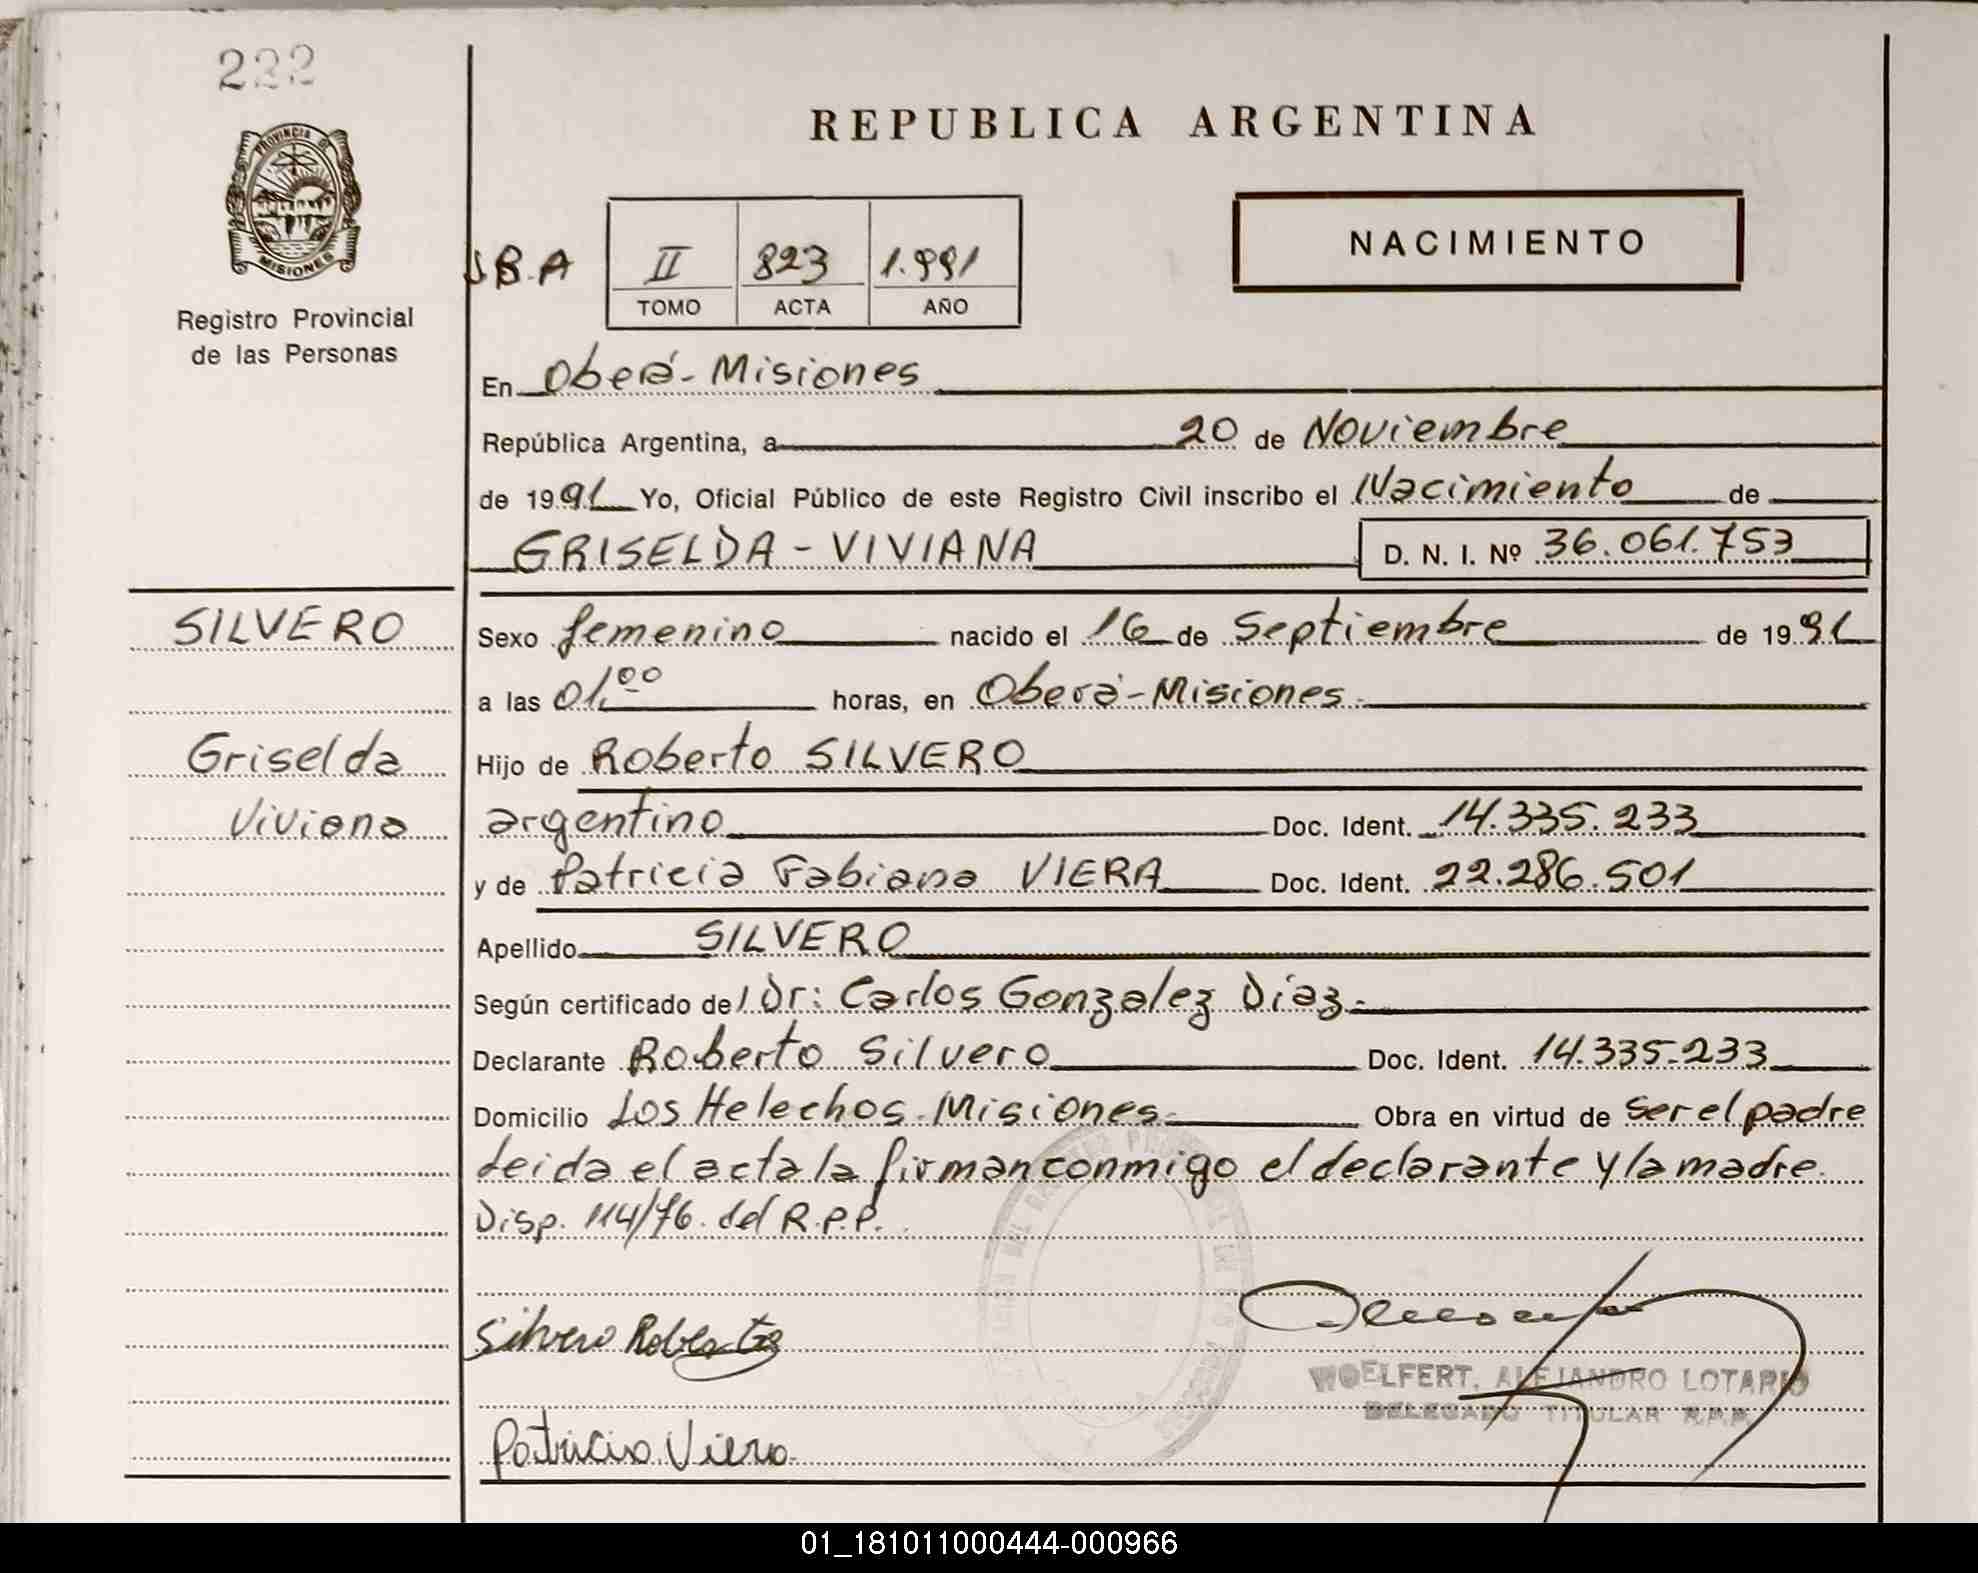 222
REPUBLICA ARGENTINA
PROVINCIA DE
MISIONES
Registro Provincial
de las Personas
B.A
II 823 1.991
TOMO ACTA AÑO
NACIMIENTO
En Oberá - Misiones
República Argentina, a 20 de Noviembre
de 1991 Yo, Oficial Público de este Registro Civil inscribo el Nacimiento de
GRISELDA - VIVIANA D. N. I. Nº 36.061.753
SILVERO
Sexo femenino nacido el 16 de Septiembre de 1991
a las 01,00 horas, en Oberá - Misiones.
Griselda
Hijo de Roberto SILVERO
Viviana
argentino Doc. Ident. 14.335.233
y de Patricia Fabiana VIERA Doc. Ident. 22.286.501
Apellido SILVERO
Según certificado del Dr: Carlos Gonzalez Díaz.
Declarante Roberto Silvero Doc. Ident. 14.335.233
Domicilio Los Helechos - Misiones. Obra en virtud de ser el padre
Leida el acta la firman conmigo el declarante y la madre.
Disp. 114/76. del R.P.P.
Silvero Roberto
WOELFERT, ALEJANDRO LOTARIO
DELEGADO TITULAR R.P.P.
Patricia Viera
01_181011000444-000966